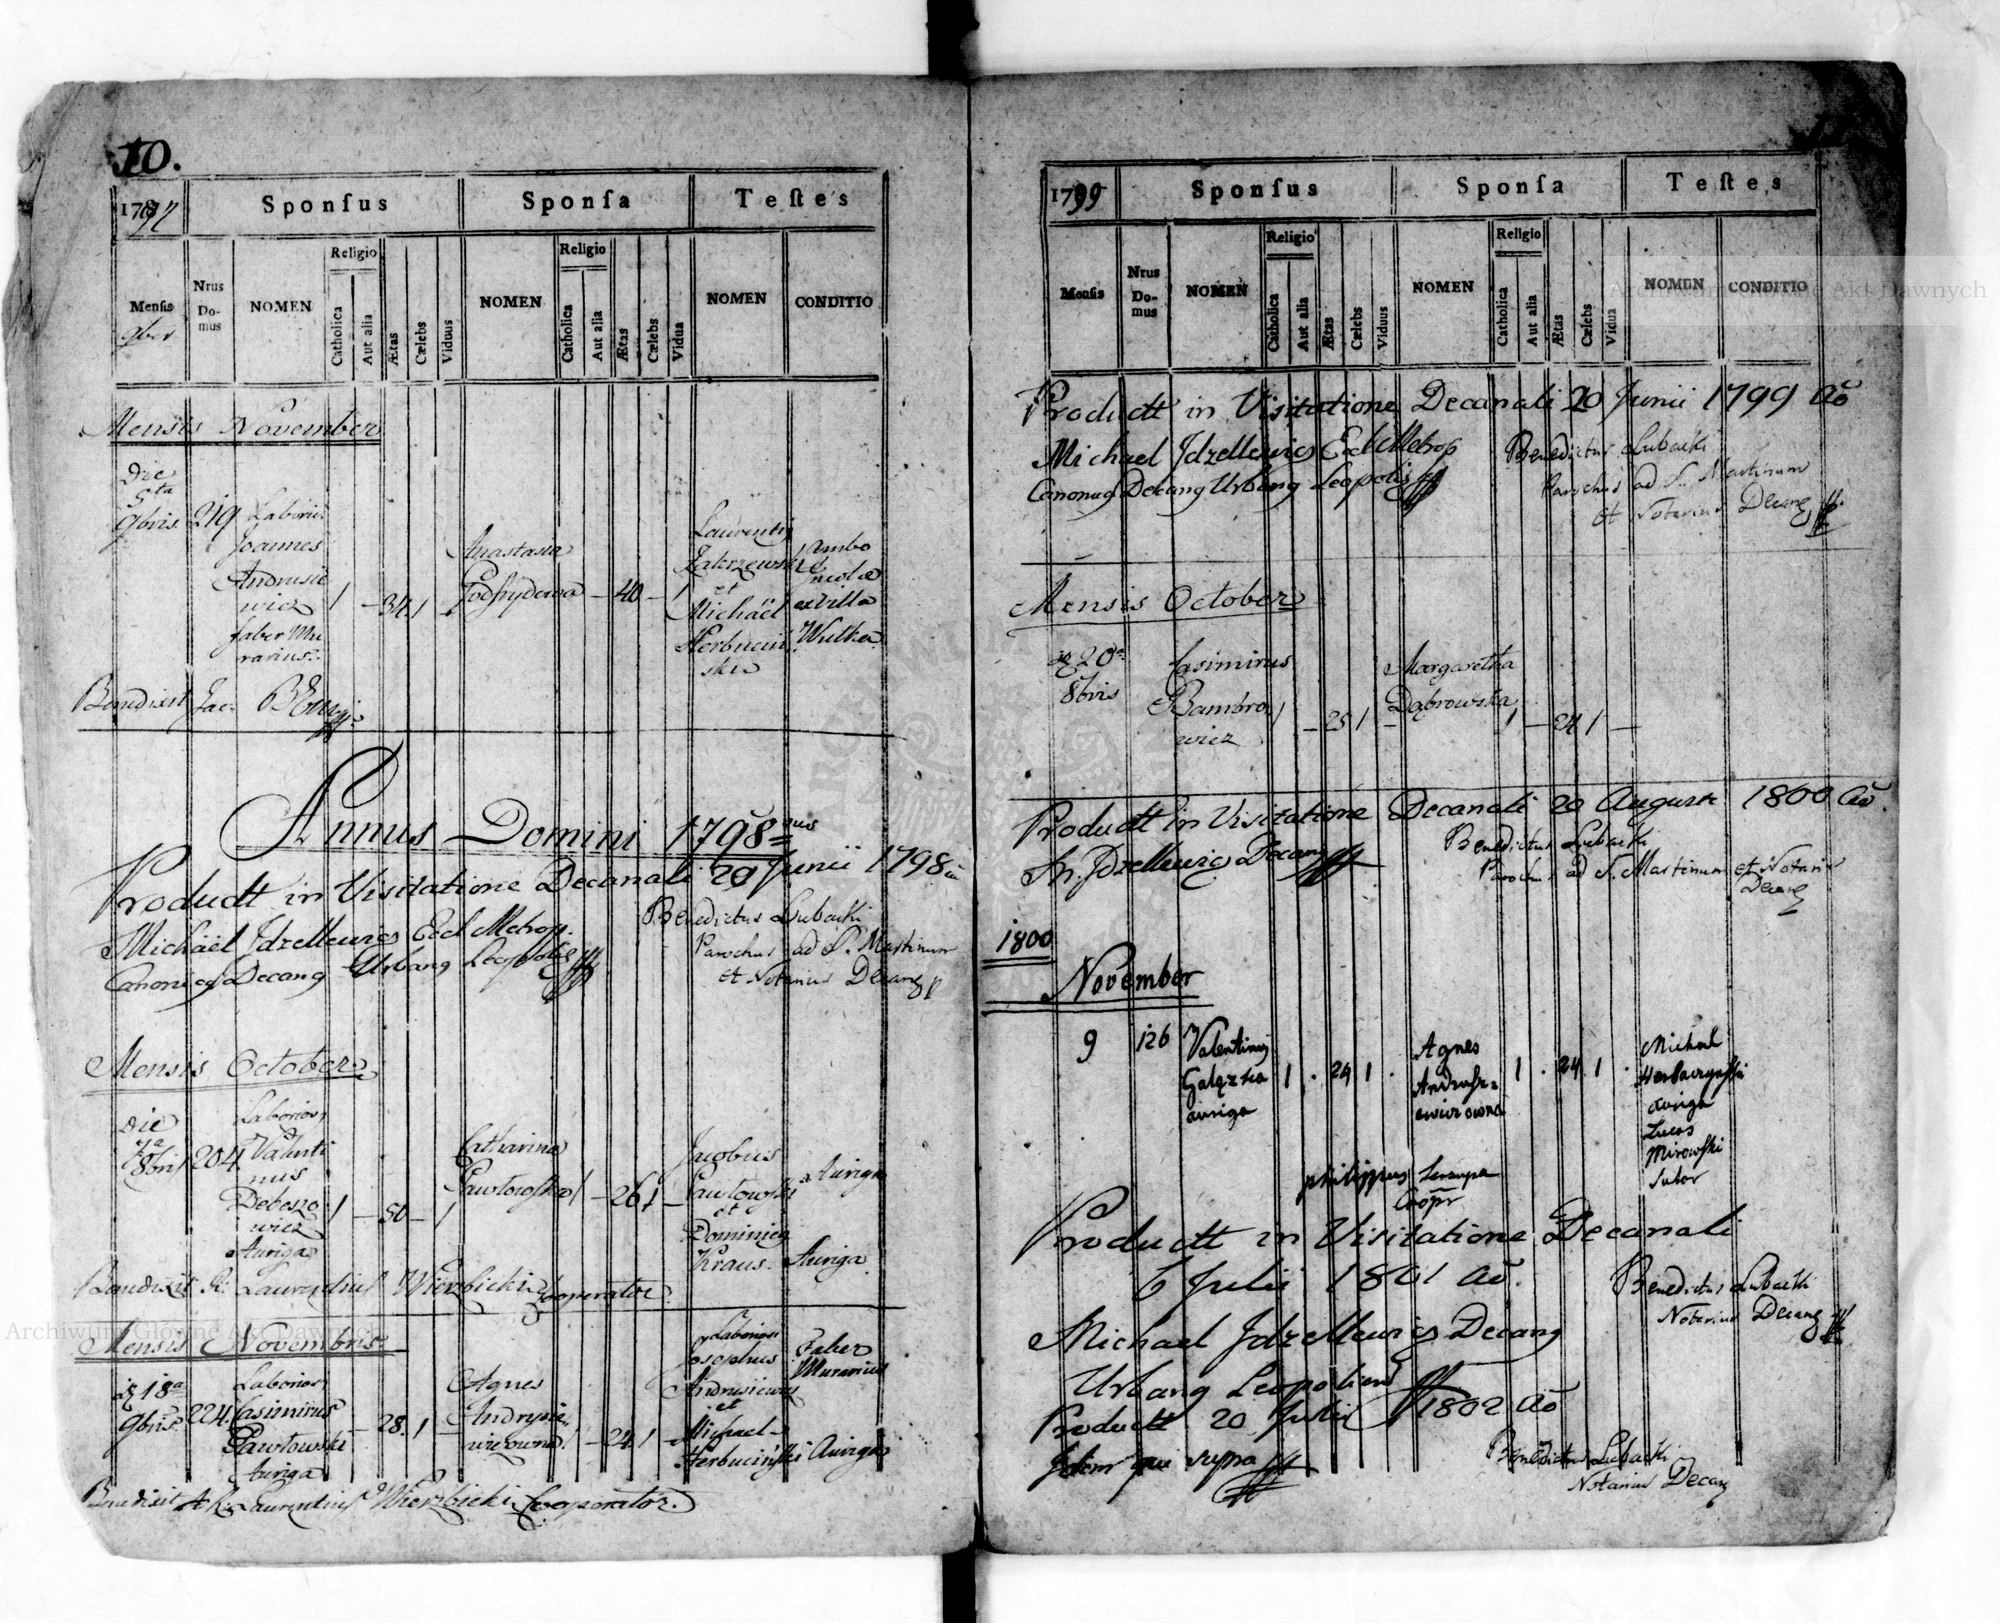 10.
1797
Sponſus
Sponſa
Teſtes
Menſis
9ber
Nrus
Do-
mus
NOMEN
Religio
Catholica
Aut alia
Ætas
Cœlebs
Viduus
NOMEN
Religio
Catholica
Aut alia
Ætas
Cœlebs
Vidua
NOMEN
CONDITIO
Mensis November
Die
5ta
9bris 219
Joannes
Andrusie
wicz
faber Mu
rarius
1 – 34 1 –
Anastasia
– 40 – 1
Laurentij
Zakrzewski
et
Michaël
Herbuciń
ski
ambo
ex villa
Wulka
Benedixit
Annus Domini 1798
Productt in Visitatione Decanali 20 Junii 1798
Michaël Jdzellewics Eccl Metrop.
Benedictus Lubacki
Parochus ad S. Martinum
et Notarius Decang
Mensis October
die
7a
8bris 204
Valenti
nus
wicz
Auriga
1 – 50 – 1
Catharina
Pawłowska 1 – 26 1 –
Jacobus
Pawłowski Auriga
et
Dominicq
Kraus. Auriga
Benedixit R. Laurentius Wierzbicki Cooperator
Mensis Novembris
18a
9bris 224
Casimirus
Pawłowski
Auriga
– 28. 1 –
Agnes
Andrysie
wiczowna 1 – 24 1 –
Josephus
et
Michael
Herbuciński Auriga
Faber
Murarius
Benedixit R. Laurentius Wierzbicki Cooperator.
11
1799
Sponſus
Sponſa
Teſtes
Menſis
Nrus
Do-
mus
NOMEN
Religio
Catholica
Aut alia
Ætas
Cœlebs
Viduus
NOMEN
Religio
Catholica
Aut alia
Ætas
Cœlebs
Vidua
NOMEN
CONDITIO
Archiwum Główne Akt Dawnych
Productt in Visitatione Decanali 20 Junii 1799 Aõ
Michael Jdzellewics Eccl Metrop
Canonicg Decang Urbang Leopolis
Benedictus Lubacki
Parochus ad S. Martinum
et Notarius Decang
Mensis October
20a
8bris
Casimirus
Bambro
wicz
1 – 25 1 –
Margaretha
Dąbrowska 1 – 24 1 –
Productt in Visitatione Decanali 20 Augusti 1800 Aõ.
Jdzellewics Decang
Benedictus Lubacki
Parochus ad S. Martinum et Notari
Decang
1800
November
9 126 Valentinus
auriga
1 . 24 1 .
Agnes
1 . 24 1 .
Michael
auriga
Lucas
Mirowski
sutor
Philippus
Coopr
Productt in Visitatione Decanali
6 Julii 1801 Aõ.
Benedictus Lubacki
Notarius Decang
Michael Jdzellewics Decang
Urbang
Productt 20 Julii 1802 Aõ
Idem qui supra
Benedictus Lubacki
Notarius Decang
Archiwum Główne Akt Dawnych